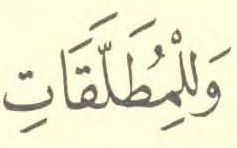 وَلِلْمُطَلَّقَاتِ